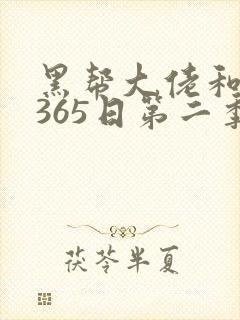 黑帮大佬和
365日第二季
茯苓半夏